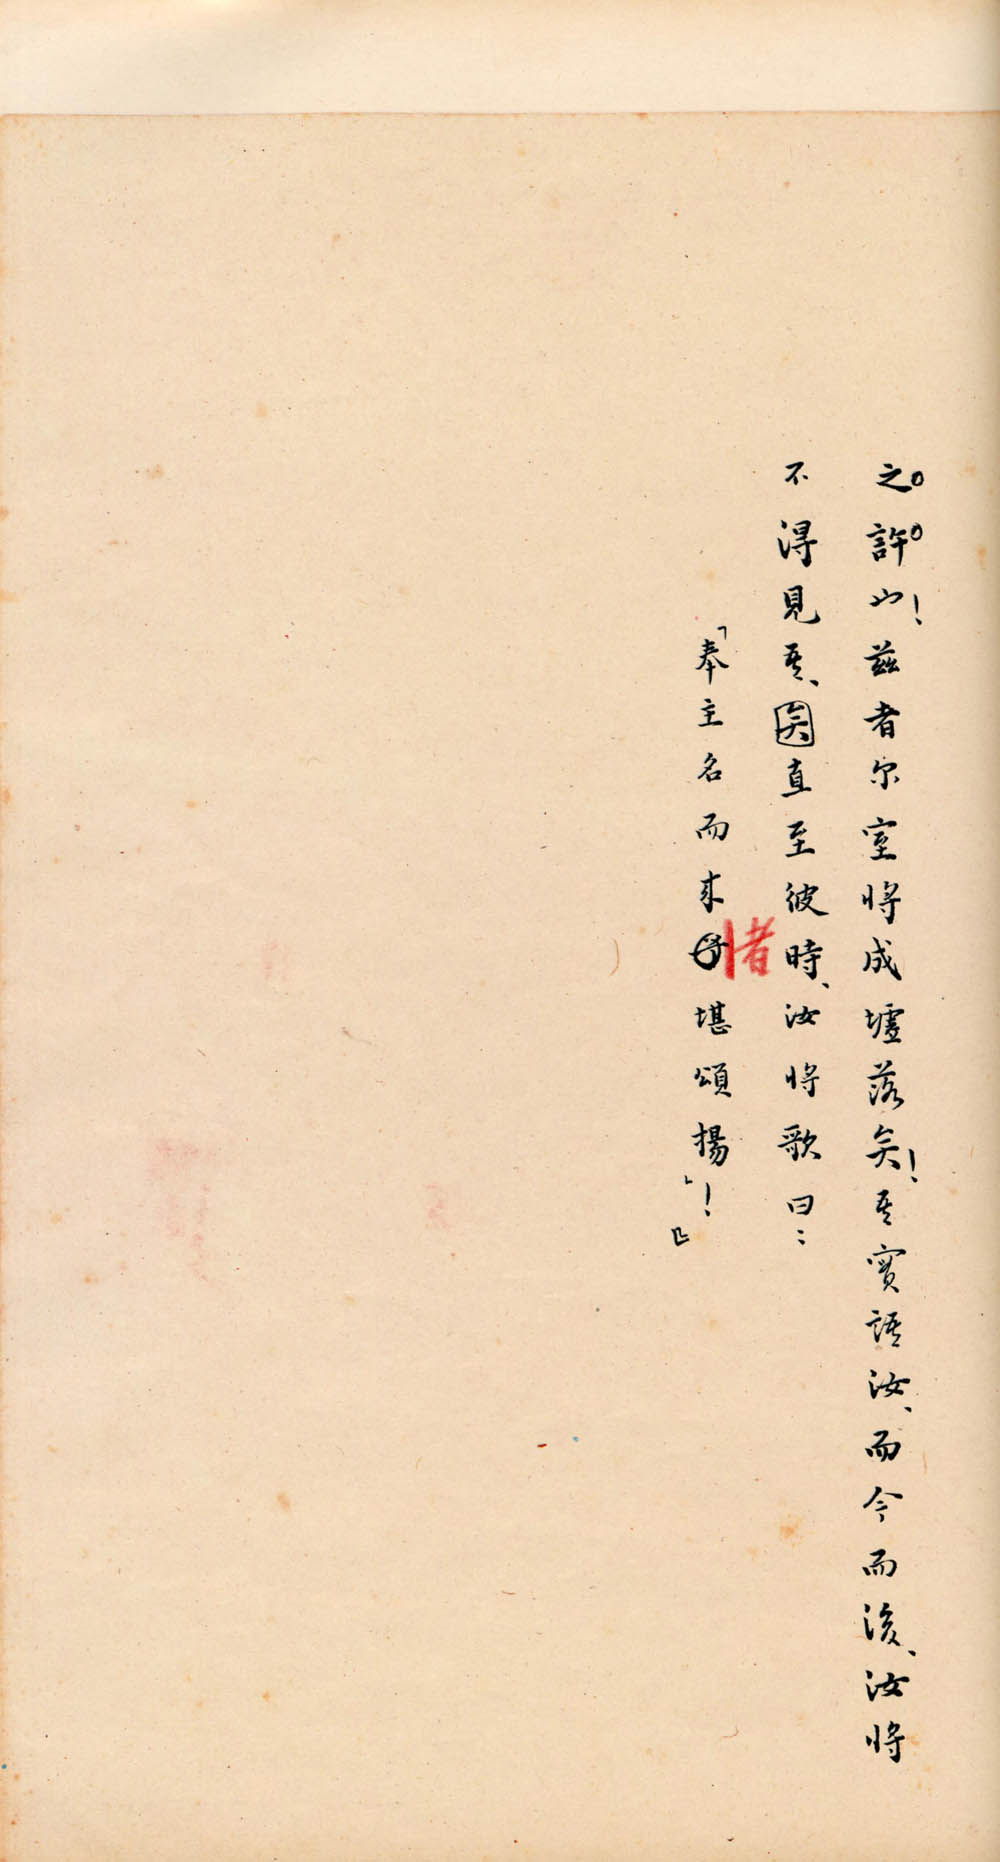 之許也！茲者尔室將成墟落矣！吾實語汝、而今而後、汝將
不得見吾、矣直至彼時、汝將歌曰：
「奉主名而來者堪頌揚」！』